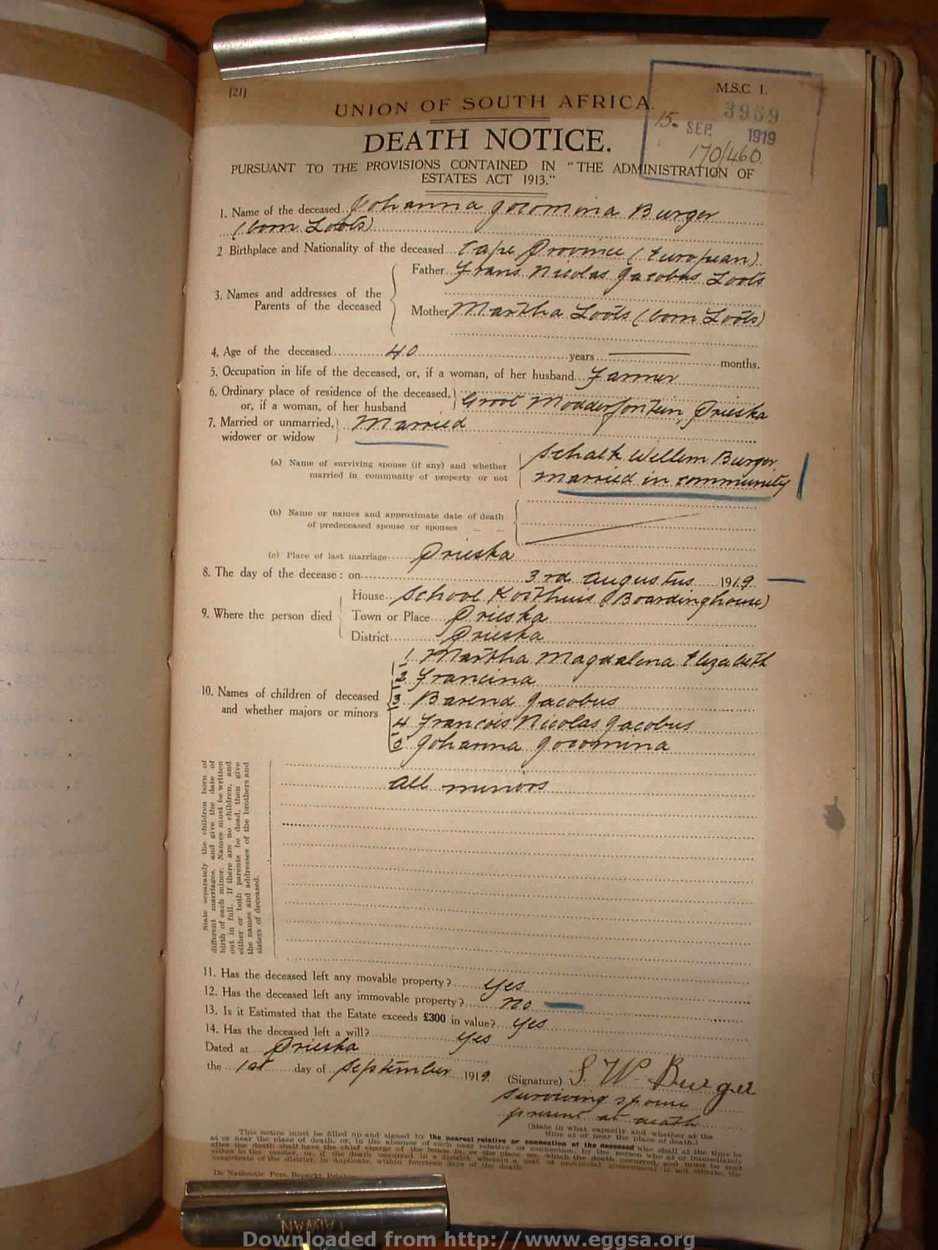 [21]
M.S.C 1.
3969
15 SEP. 1919
170/460.
UNION OF SOUTH AFRICA.
DEATH NOTICE.
PURSUANT TO THE PROVISIONS CONTAINED IN "THE ADMINISTRATION OF
ESTATES ACT 1913."
1. Name of the deceased Johanna Jocomina Burger
(born Loots)
2 Birthplace and Nationality of the deceased Cape Province (European)
3. Names and addresses of the Parents of the deceased
Father Frans Nicolas Jacobus Loots
Mother Martha Loots (born Loots)
4. Age of the deceased 40 years — months.
5. Occupation in life of the deceased, or, if a woman, of her husband Farmer
6. Ordinary place of residence of the deceased,
or, if a woman, of her husband Groot Modderfontein, Prieska
7. Married or unmarried, Married
widower or widow
(a) Name of surviving spouse (if any) and whether Schalk Willem Burger
married in community of property or not married in community
(b) Name or names and approximate date of death
of predeceased spouse or spouses ... ...
(c) Place of last marriage Prieska
8. The day of the decease: on 3rd Augustus 1919
9. Where the person died
House School Kosthuis (Boardinghouse)
Town or Place Prieska
District Prieska
10. Names of children of deceased
and whether majors or minors
1. Martha Magdalena Elizabeth
2 Francina
3. Barend Jacobus
4 Francois Nicolas Jacobus
5 Johanna Jocomina
All minors
State separately the children born of
different marriages, and give the date of
birth of each minor. Names must be written
out in full. If there are no children, and
either or both parents be dead, then give
the names and addresses of the brothers and
sisters of deceased.
11. Has the deceased left any movable property? Yes
12. Has the deceased left any immovable property? no
13. Is it Estimated that the Estate exceeds £300 in value? Yes
14. Has the deceased left a will? Yes
Dated at Prieska
the 1st day of September 1919
(Signature) S. W. Burger
surviving spouse
present at death
(State in what capacity and whether at the
time at or near the place of death.)
This notice must be filled up and signed by the nearest relative or connection of the deceased who shall at the time be
at or near the place of death, or, in the absence of such near relative or connection, by the person who at or immediately
after the death shall have the chief charge of the house in, or the place on, which the death occurred, and must be sent
either to the master, or, if the death occurred in a district wherein a seat of provincial government is not situate, the
magistrate of the district, in duplicate, within fourteen days of the death.
De Nationale Pers, Beperkt,
Downloaded from http://www.eggsa.org